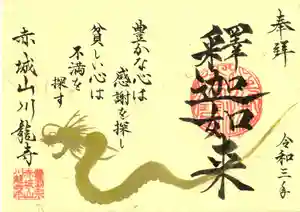 奉拝
令和三年
釋迦如来
豊かな心は
感謝を探し
貧しい心は
不満を
探す
赤城山川龍寺